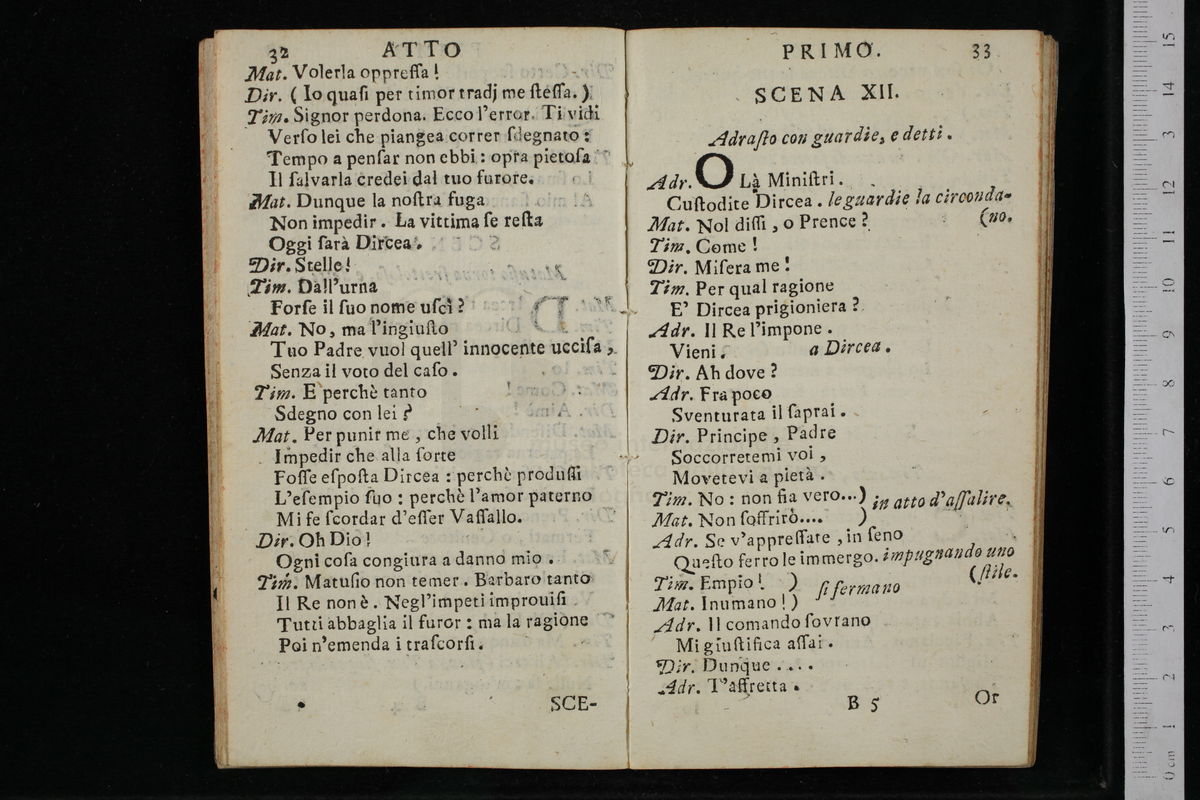 32 ATTO
Mat. Volerla oppreſſa!
Dir. ( Io quaſi per timor tradj me ſteſſa. )
Tim. Signor perdona. Ecco l'error. Ti vidi
Verſo lei che piangea correr ſdegnato:
Tempo a penſar non ebbi: opra pietoſa
Il ſalvarla credei dal tuo furore.
Mat. Dunque la noſtra fuga
Non impedir. La vittima ſe reſta
Oggi ſarà Dircea.
Dir. Stelle!
Tim. Dall'urna
Forſe il ſuo nome uſcì?
Mat. No, ma l'ingiuſto
Tuo Padre vuol quell' innocente ucciſa,
Senza il voto del caſo.
Tim. E perchè tanto
Sdegno con lei?
Mat. Per punir me, che volli
Impedir che alla ſorte
Foſſe eſpoſta Dircea: perchè produſſi
L'eſempio ſuo: perchè l'amor paterno
Mi fe ſcordar d'eſſer Vaſſallo.
Dir. Oh Dio!
Ogni coſa congiura a danno mio.
Tim. Matuſio non temer. Barbaro tanto
Il Re non è. Negl'impeti improuiſi
Tutti abbaglia il furor: ma la ragione
Poi n'emenda i traſcorſi.
SCE-
PRIMO. 33
SCENA XII.
Adraſto con guardie, e detti.
Adr. OLà Miniſtri.
Cuſtodite Dircea. le guardie la circonda-
Mat. Nol diſſi, o Prence? (no.
Tim. Come!
Dir. Miſera me!
Tim. Per qual ragione
E' Dircea prigioniera?
Adr. Il Re l'impone.
Vieni. a Dircea.
Dir. Ah dove?
Adr. Fra poco
Sventurata il ſaprai.
Dir. Principe, Padre
Soccorretemi voi,
Movetevi a pietà.
Tim. No: non fia vero...) in atto d'aſſalire.
Mat. Non ſoffrirò.... )
Adr. Se v'appreſſate, in ſeno
Queſto ferro le immergo. impugnando uno
Tim. Empio! ) (ſtile.
Mat. Inumano!) ſi fermano
Adr. Il comando ſovrano
Mi giuſtifica aſſai.
Dir. Dunque ....
Adr. T'affretta.
B 5 Or
15
14
13
12
11
10
9
8
7
6
5
4
3
2
1
0 cm